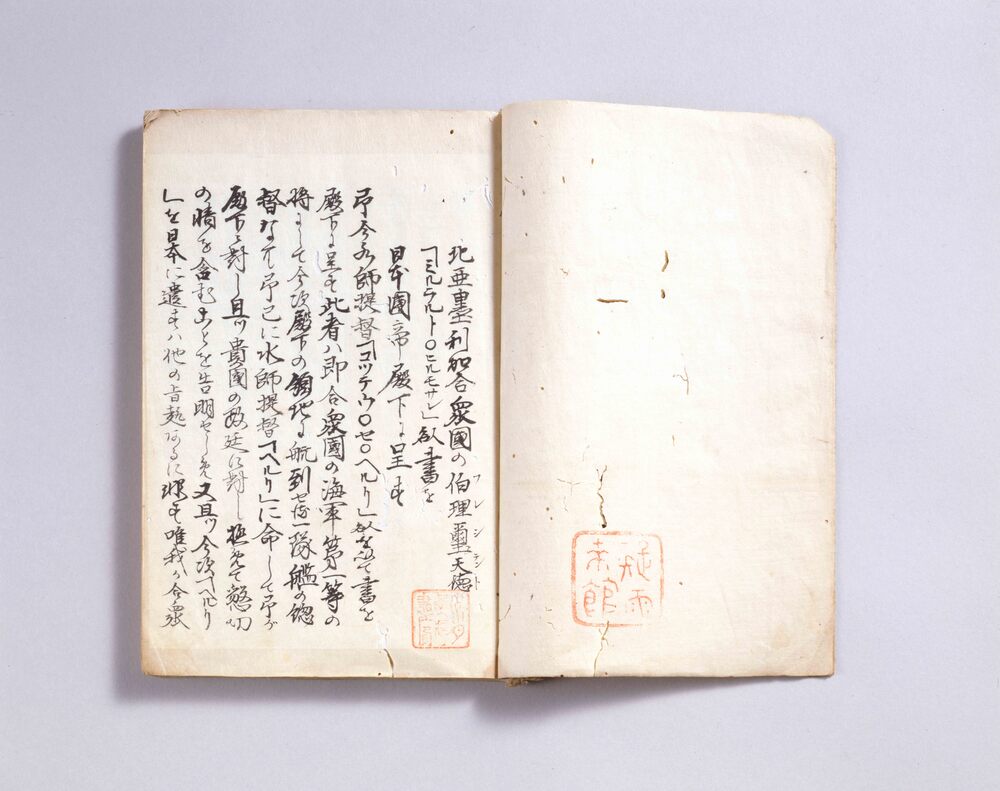 北亜墨利加合衆國の伯理璽天徳
フレシテント
「ミルラルト〇ヒルモサレ」欽書を
日本國帝殿下に呈す
予今水師提督「マツテウ〇セ〇ヘルリ」を以て書を
殿下に呈す此者ハ即合衆國の海軍第一等の
将にして今次殿下の領地に航到せる一隊艦の惣
督なり予已に水師提督「ヘルリ」に命して予が
殿下に對し且ツ貴國の政廷に對し極めて懇切
の情を含むことを告明せしめ又且ツ今次「ヘルリ
」を日本に遣すハ他の旨趣あるに非す唯我か合衆